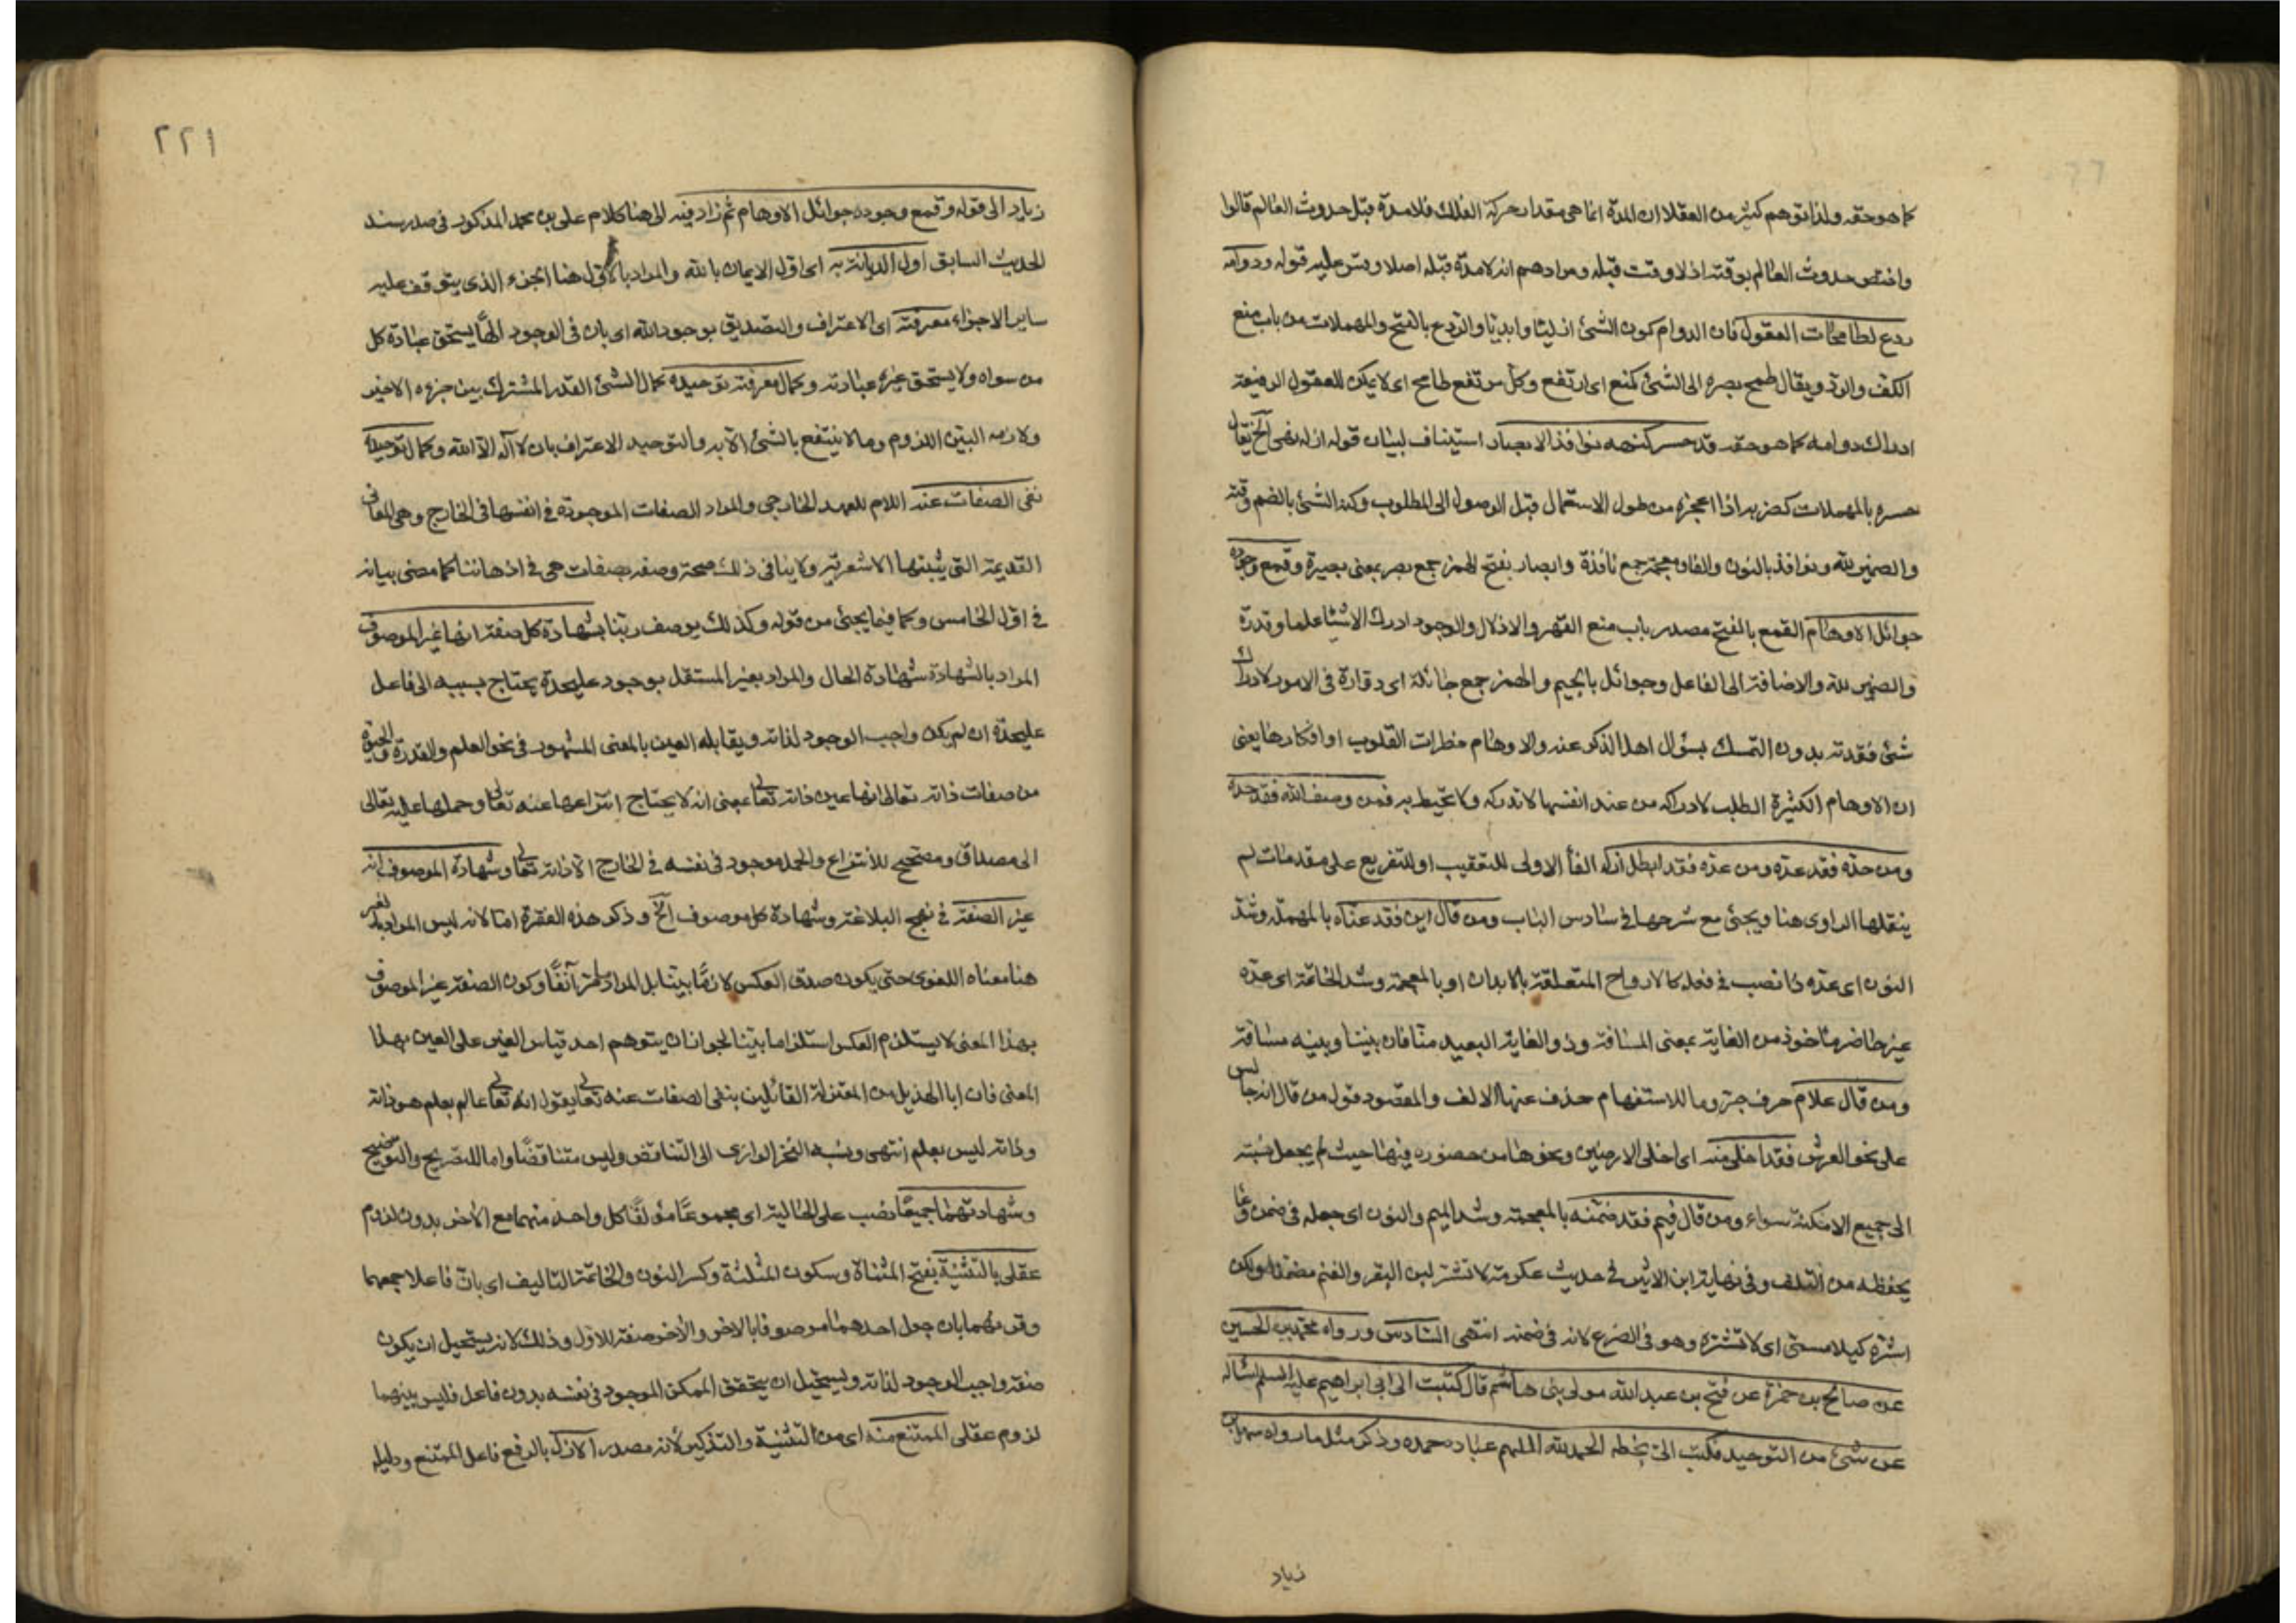 كما هو حقه ولذا توهم كثير من العقلا ان المدة انما هي مقدار حركة الفلك فلا مدة قبل حدوث العالم قالوا
واختص حدوث العالم بوقته اذ لا وقت قبله ومرادهم انه لا مدة قبله اصلا وقس عليه قوله ودوامه
ردع لطامحات العقول فان الدوام كون الشئ ازليا وابديا والردع بالفتح والمهملات من باب منع
الكف والرد ويقال طمح بصره الى الشئ كمنع اى ارتفع وكل مرتفع طامح اى لا يمكن للعقول الرفيعة
ادراك دوامه كما هو حقه قد حسر كنهه نوافذ الابصار استيناف لبيان قوله ازله نهى الخ يقال
حسره بالمهملات كضربه اذا اعجزه من طول الاستعمال قبل الوصول الى المطلوب وكنه الشئ بالضم وقته
والضمير لله ونوافذ بالنون والفاء ومعجمة جمع نافذة وابصار بفتح الهمز جمع بصر بمعنى بصيرة وقمع وجوده
جوائل الاوهام القمع بالفتح مصدر باب منع القهر والاذلال والوجود ادرك الاشيا علما وقدرة
والضمير لله والاضافة الى الفاعل وجوائل بالجيم والهمز جمع جائلة اى دقارة فى الامور لادراك
شئ فقدته بدون التمسك بسؤال اهل الذكر عنه والاوهام خطرات القلوب او افكارها يعنى
ان الاوهام الكثيرة الطلب لادراكه من عند انفسها لا تدركه ولا تحيط به فمن وصف الله فقد حده
ومن حده فقد عده ومن عده فقد ابطل ازله الفأ الاولى للتعقيب او للتفريع على مقدمات لم
ينقلها الراوى هنا ويجئ مع شرحها فى سادس الباب ومن قال اين فقد عناه بالمهملة وشد
النون اى عده ذا نصب فى فعله كالارواح المتعلقة بالابدان او بالمعجمة وشد الخاتمة اى عده
غير حاضر مأخوذ من الغاية بمعنى المسافة وذو الغاية البعيد منا فان بيننا وبينه مسافة
ومن قال علام حرف جر وما للاستفهام حذف عنها الالف والمقصود قول من قال انه جالس
على نحو العرش فقد اخلى منه اى اخلى الارضين ونحوها من حضوره فيها حيث لم يجعل نسبته
الى جميع الامكنة سواء ومن قال فيم فقد ضمنه بالمعجمة وشد الميم والنون اى جعله فى ضمن وعا
يحفظه من التلف وفى نهاية ابن الاثير فى حديث عكرمة لا تشتر لبن البقر والغنم مضمنا ولكن
اشتره كيلا مسمى اى لا تشتره وهو فى الضرع لانه فى ضمنه انتهى السادس ورواه محمد بن الحسين
عن صالح بن حمزة عن فتح بن عبد الله مولى بنى هاشم قال كتبت الى ابى ابراهيم عليه السلم اسأله
عن شئ من التوحيد فكتب الى بخطه الحمد لله الملهم عباده حمده وذكر مثل ما رواه سهل بن
زياد
٢٢١
زياد الى قوله وقمع وجوده جوائل الاوهام ثم زاد فيه الى هنا كلام على بن محمد المذكور فى صدر سند
الحديث السابق اول الديانة به اى اول الايمان بالله والمراد بالاول هنا الجزء الذى يتوقف عليه
ساير الاجزاء معرفته اى الاعتراف والتصديق بوجود الله اى بان فى الوجود الها يستحق عبادة كل
من سواه ولا يستحق غيره عبادته وكمال معرفته توحيده كمال الشئ القدر المشترك بين جزءه الاخير
ولازمه البين اللزوم وما لا ينتفع بالشئ الا به والتوحيد الاعتراف بان لا اله الا الله وكمال توحيده
نفى الصفات عنه اللام للعهد الخارجى والمراد الصفات الموجودة فى انفسها فى الخارج وهى المعانى
القديمة التى يثبتها الاشعرية ولا ينافى ذلك صحة وصفه بصفات هى فى اذهاننا كما مضى بيانه
فى اول الخامس وكما فيما يجئ من قوله وكذلك يوصف ربنا بشهادة كل صفة انها غير الموصوف
المراد بالشهادة شهادة الحال والمراد بغير المستقل بوجود عليحدة يحتاج بسببه الى فاعل
عليحدة ان لم يكن واجب الوجود لذاته ويقابله العين بالمعنى المشهور فى نحو العلم والقدرة والحيوة
من صفات ذاته تعالى انها عين ذاته تعالى بمعنى انه لا يحتاج انتزاعها عنه تعالى وحملها عليه تعالى
الى مصداق ومصحح للانتزاع والحمل موجود فى نفسه فى الخارج الا ذاته تعالى وشهادة الموصوف انه
غير الصفة فى نهج البلاغة وشهادة كل موصوف الخ وذكر هذه الفقرة اما لانه ليس المراد بالغير
هنا معناه اللغوى حتى يكون صدق العكس لازما بينا بل المراد ما مر آنفا وكون الصفة غير الموصوف
بهذا المعنى لا يستلزم العكس استلزاما بينا لجواز ان يتوهم احد قياس الغير على العين بهذا
المعنى فان ابا الهذيل من المعتزلة القائلين بنفى الصفات عنه تعالى يقول انه تعالى عالم بعلم هو ذاته
وذاته ليس بعلم انتهى ونسبه الفخر الرازى الى التناقض وليس متناقضا واما للتصريح والتوضيح
وشهادتهما جميعا نصب على الحالية اى مجموعا مؤلفا كل واحد منهما مع الاخر بدون لزوم
عقلى بالتثنية بفتح المثناة وسكون المثلثة وكسر النون والخاتمة التاليف اى بان فاعلا جمعهما
وقرنهما بان جعل احدهما موصوفا بالاخر والاخر صفة للاول وذلك لانه يستحيل ان يكون
صفة واجب الوجود لذاته ويستحيل ان يتحقق الممكن الموجود فى نفسه بدون فاعل فليس بينهما
لزوم عقلى الممتنع منه اى من التثنية والتذكير لانه مصدر الازل بالرفع فاعل الممتنع ودليله